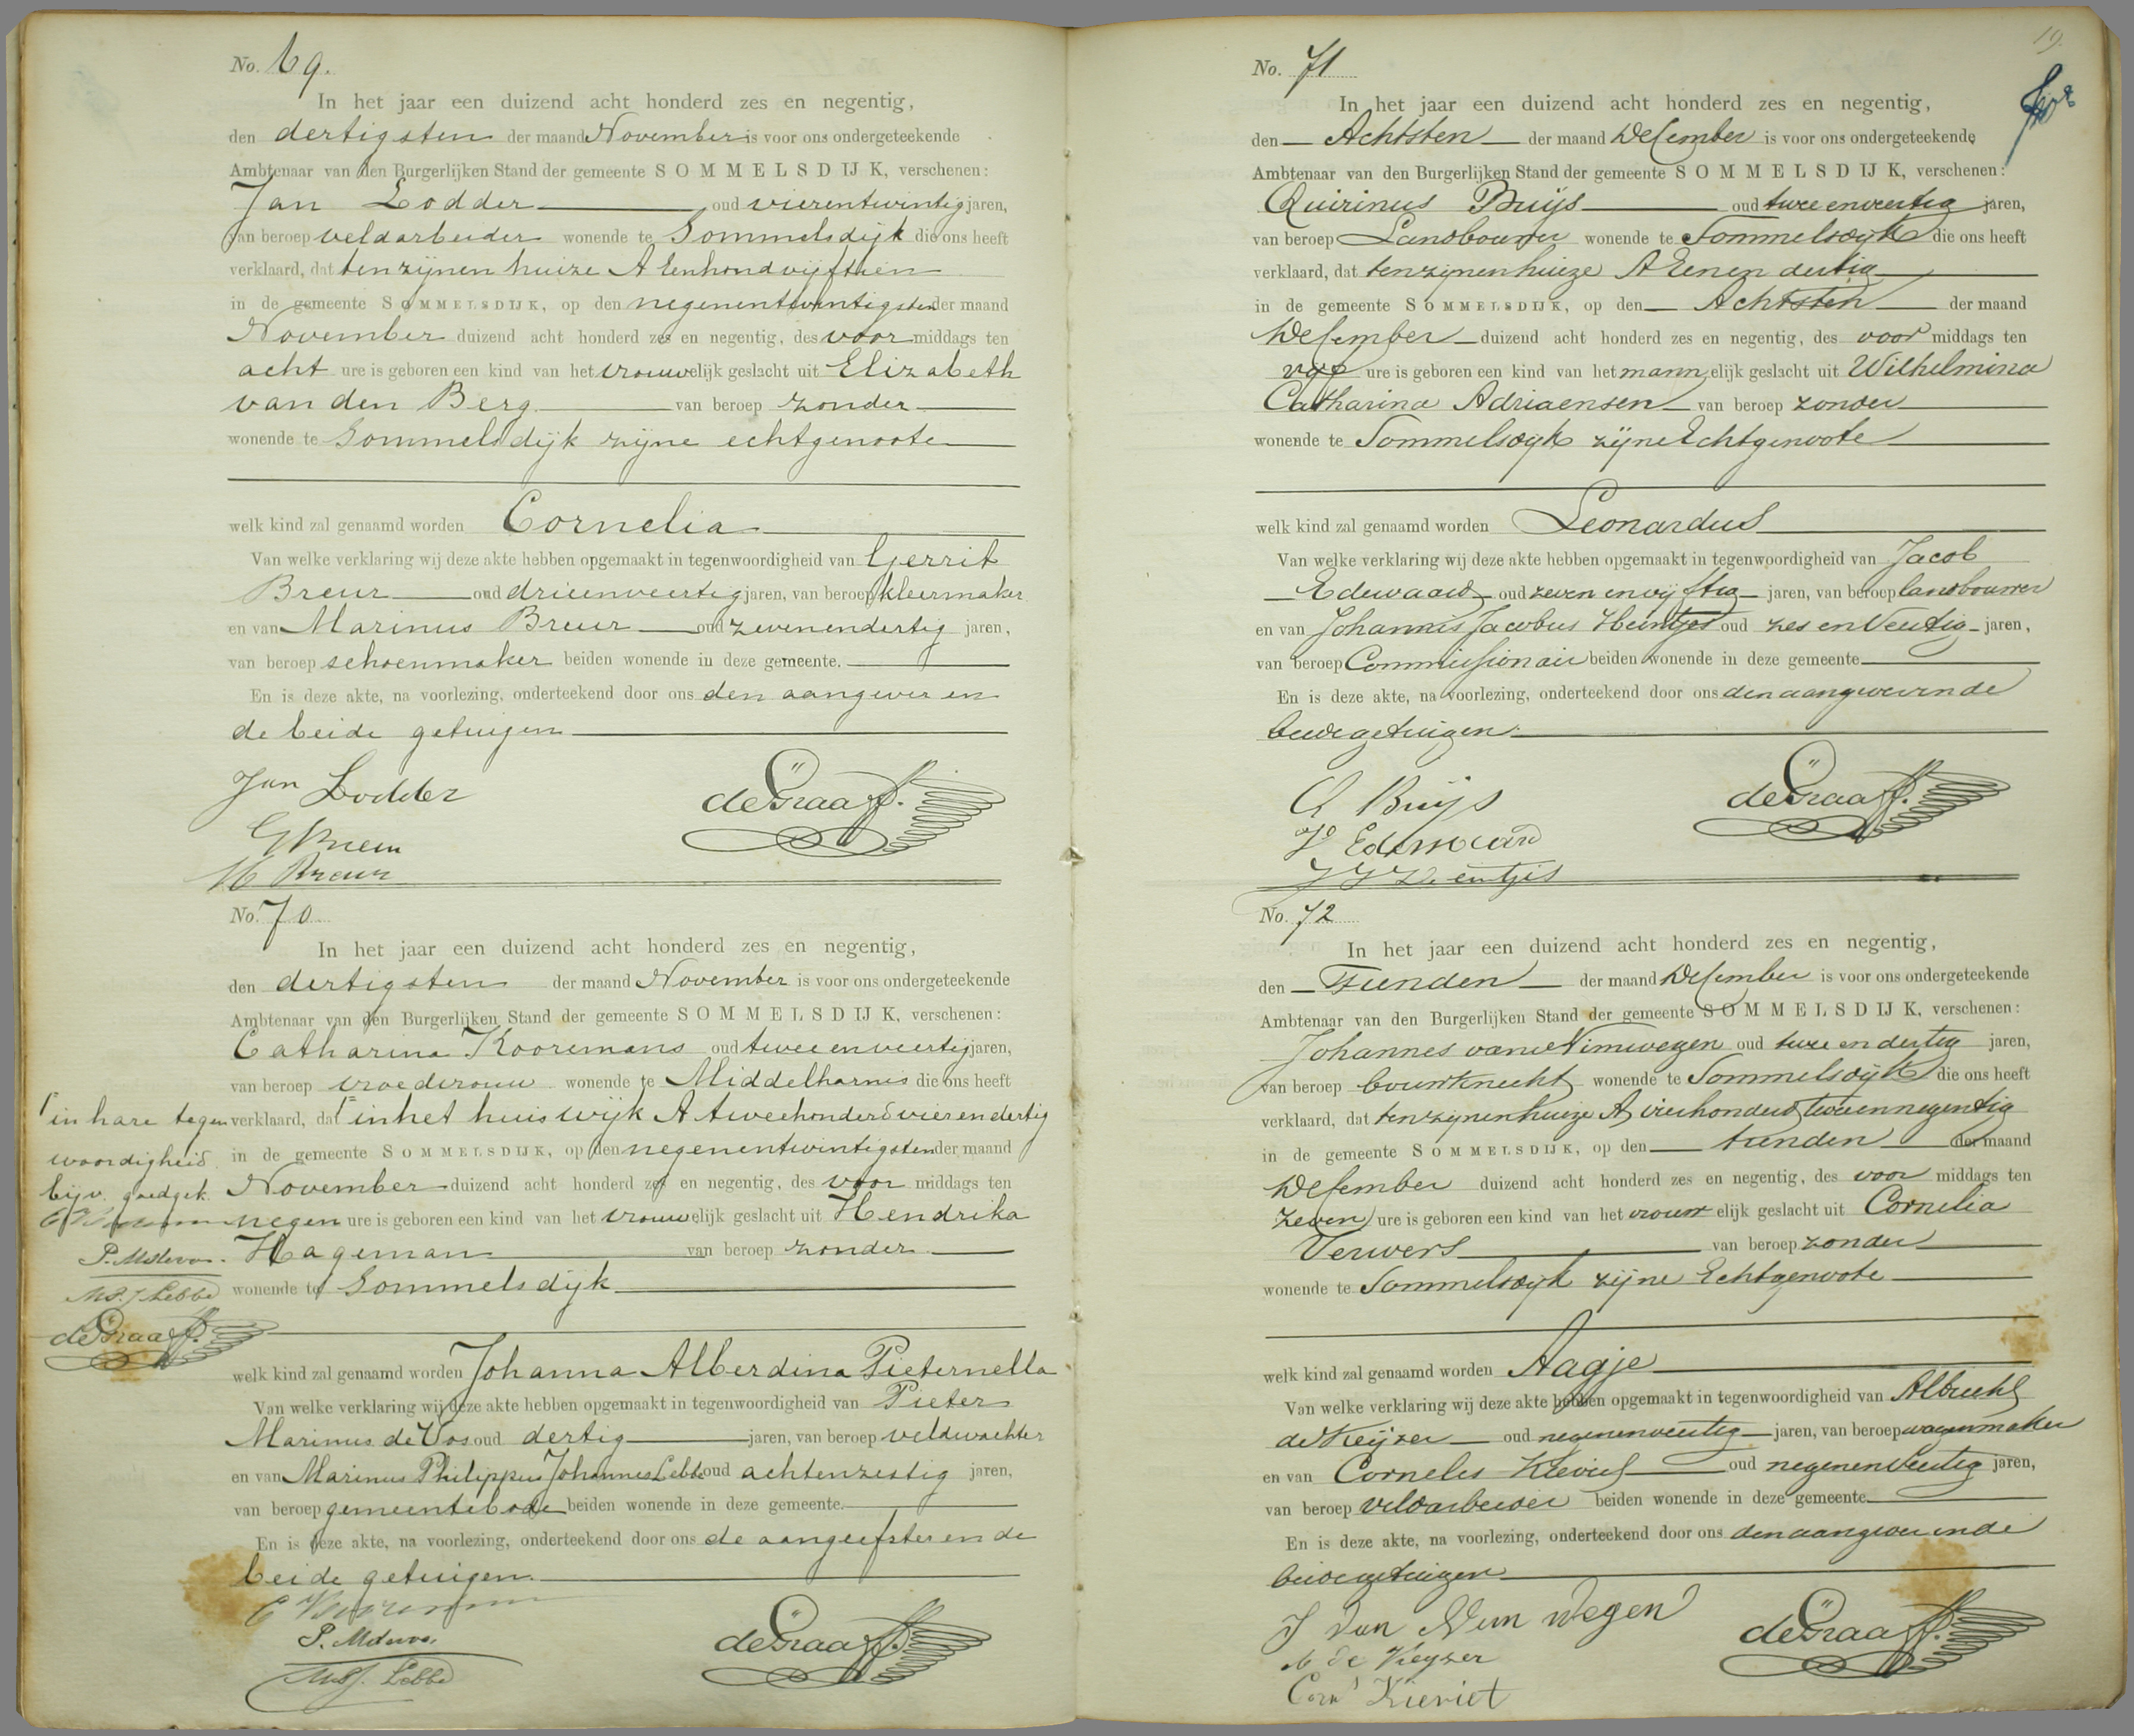 No. 69.
In het jaar een duizend acht honderd zes en negentig,
den dertigsten der maand November is voor ons ondergeteekende
Ambtenaar van den Burgerlijken Stand der gemeente SOMMELSDIJK, verschenen:
Jan Lodder oud vierentwintig jaren,
van beroep veldarbeider wonende te Sommelsdijk die ons heeft
verklaard, dat ten zijnen huize A Eenhondvijftien
in de gemeente SOMMELSDIJK, op den negenentwintigsten der maand
November duizend acht honderd zes en negentig, des voor middags ten
acht ure is geboren een kind van het vrouwelijk geslacht uit Elizabeth
van den Berg van beroep zonder
wonende te Sommelsdijk zijne echtgenoote
welk kind zal genaamd worden Cornelia
Van welke verklaring wij deze akte hebben opgemaakt in tegenwoordigheid van Gerrit
Breur oud drieenveertig jaren, van beroep kleermaker
en van Marinus Breur oud zevenendertig jaren,
van beroep schoenmaker beiden wonende in deze gemeente.
En is deze akte, na voorlezing, onderteekend door ons den aangever en
de beide getuigen
Jan Lodder
de Graaff.
G Breur
M Breur
No. 70
In het jaar een duizend acht honderd zes en negentig,
den dertigsten der maand November is voor ons ondergeteekende
Ambtenaar van den Burgerlijken Stand der gemeente SOMMELSDIJK, verschenen:
Catharina Kooremans oud twee en veertig jaren,
van beroep vroedvrouw wonende te Middelharnis die ons heeft
verklaard, dat in het huis wijk A tweehonderd vier en dertig
in de gemeente SOMMELSDIJK, op den negenentwintigsten der maand
November duizend acht honderd zes en negentig, des voor middags ten
negen ure is geboren een kind van het vrouwelijk geslacht uit Hendrika
Hageman van beroep zonder
wonende te Sommelsdijk
in hare tegen
woordigheid
bijv. goedgek.
P. M de Vos.
M.P.J Lebbe
de Graaff.
welk kind zal genaamd worden Johanna Alberdina Pieternella
Van welke verklaring wij deze akte hebben opgemaakt in tegenwoordigheid van Pieter
Marinus de Vos oud dertig jaren, van beroep veldwachter
en van Marinus Philippus Johannes Lebbe oud achtenzestig jaren,
van beroep gemeentebode beiden wonende in deze gemeente.
En is deze akte, na voorlezing, onderteekend door ons de aangeefster en de
beide getuigen.
P. M de Vos.
de Graaff.
M.P.J. Lebbe
19.
No. 71
In het jaar een duizend acht honderd zes en negentig,
den Achtsten der maand December is voor ons ondergeteekende
Ambtenaar van den Burgerlijken Stand der gemeente SOMMELSDIJK, verschenen:
Quirinus Buijs oud twee en veertig jaren,
van beroep Landbouwer wonende te Sommelsdijk die ons heeft
verklaard, dat ten zijnen huize A Eenen dertig
in de gemeente SOMMELSDIJK, op den Achtsten der maand
December duizend acht honderd zes en negentig, des voor middags ten
vijf ure is geboren een kind van het mannelijk geslacht uit Wilhelmina
Catharina Adriaensen van beroep zonder
wonende te Sommelsdijk zijne Echtgenoote
welk kind zal genaamd worden Leonardus
Van welke verklaring wij deze akte hebben opgemaakt in tegenwoordigheid van Jacob
Edewaard oud zeven en vijftig jaren, van beroep landbouwer
en van Johannis Jacobus Heintjes oud zes en Veertig jaren,
van beroep Commissionair beiden wonende in deze gemeente
En is deze akte, na voorlezing, onderteekend door ons den aangever en de
beide getuigen.
Q Buijs
de Graaff.
Jb Edewaard
J J Heintjes
No. 72
In het jaar een duizend acht honderd zes en negentig,
den Tienden der maand December is voor ons ondergeteekende
Ambtenaar van den Burgerlijken Stand der gemeente SOMMELSDIJK, verschenen:
Johannes van Nimwegen oud twee en dertig jaren,
van beroep bouwknecht wonende te Sommelsdijk die ons heeft
verklaard, dat ten zijnen huize A vierhonderd tweeennegentig
in de gemeente SOMMELSDIJK, op den tienden der maand
December duizend acht honderd zes en negentig, des voor middags ten
zeven ure is geboren een kind van het vrouwelijk geslacht uit Cornelia
Verwers van beroep zonder
wonende te Sommelsdijk zijne Echtgenoote
welk kind zal genaamd worden Aagje
Van welke verklaring wij deze akte hebben opgemaakt in tegenwoordigheid van Albrecht
de Keijzer oud negenenveertig jaren, van beroep wagenmaker
en van Cornelis Kieviet oud negenenveertig jaren,
van beroep veldarbeider beiden wonende in deze gemeente
En is deze akte, na voorlezing, onderteekend door ons den aangever en de
beide getuigen
J van Nimwegen
de Graaff.
A de Keyzer
Corns Kieviet